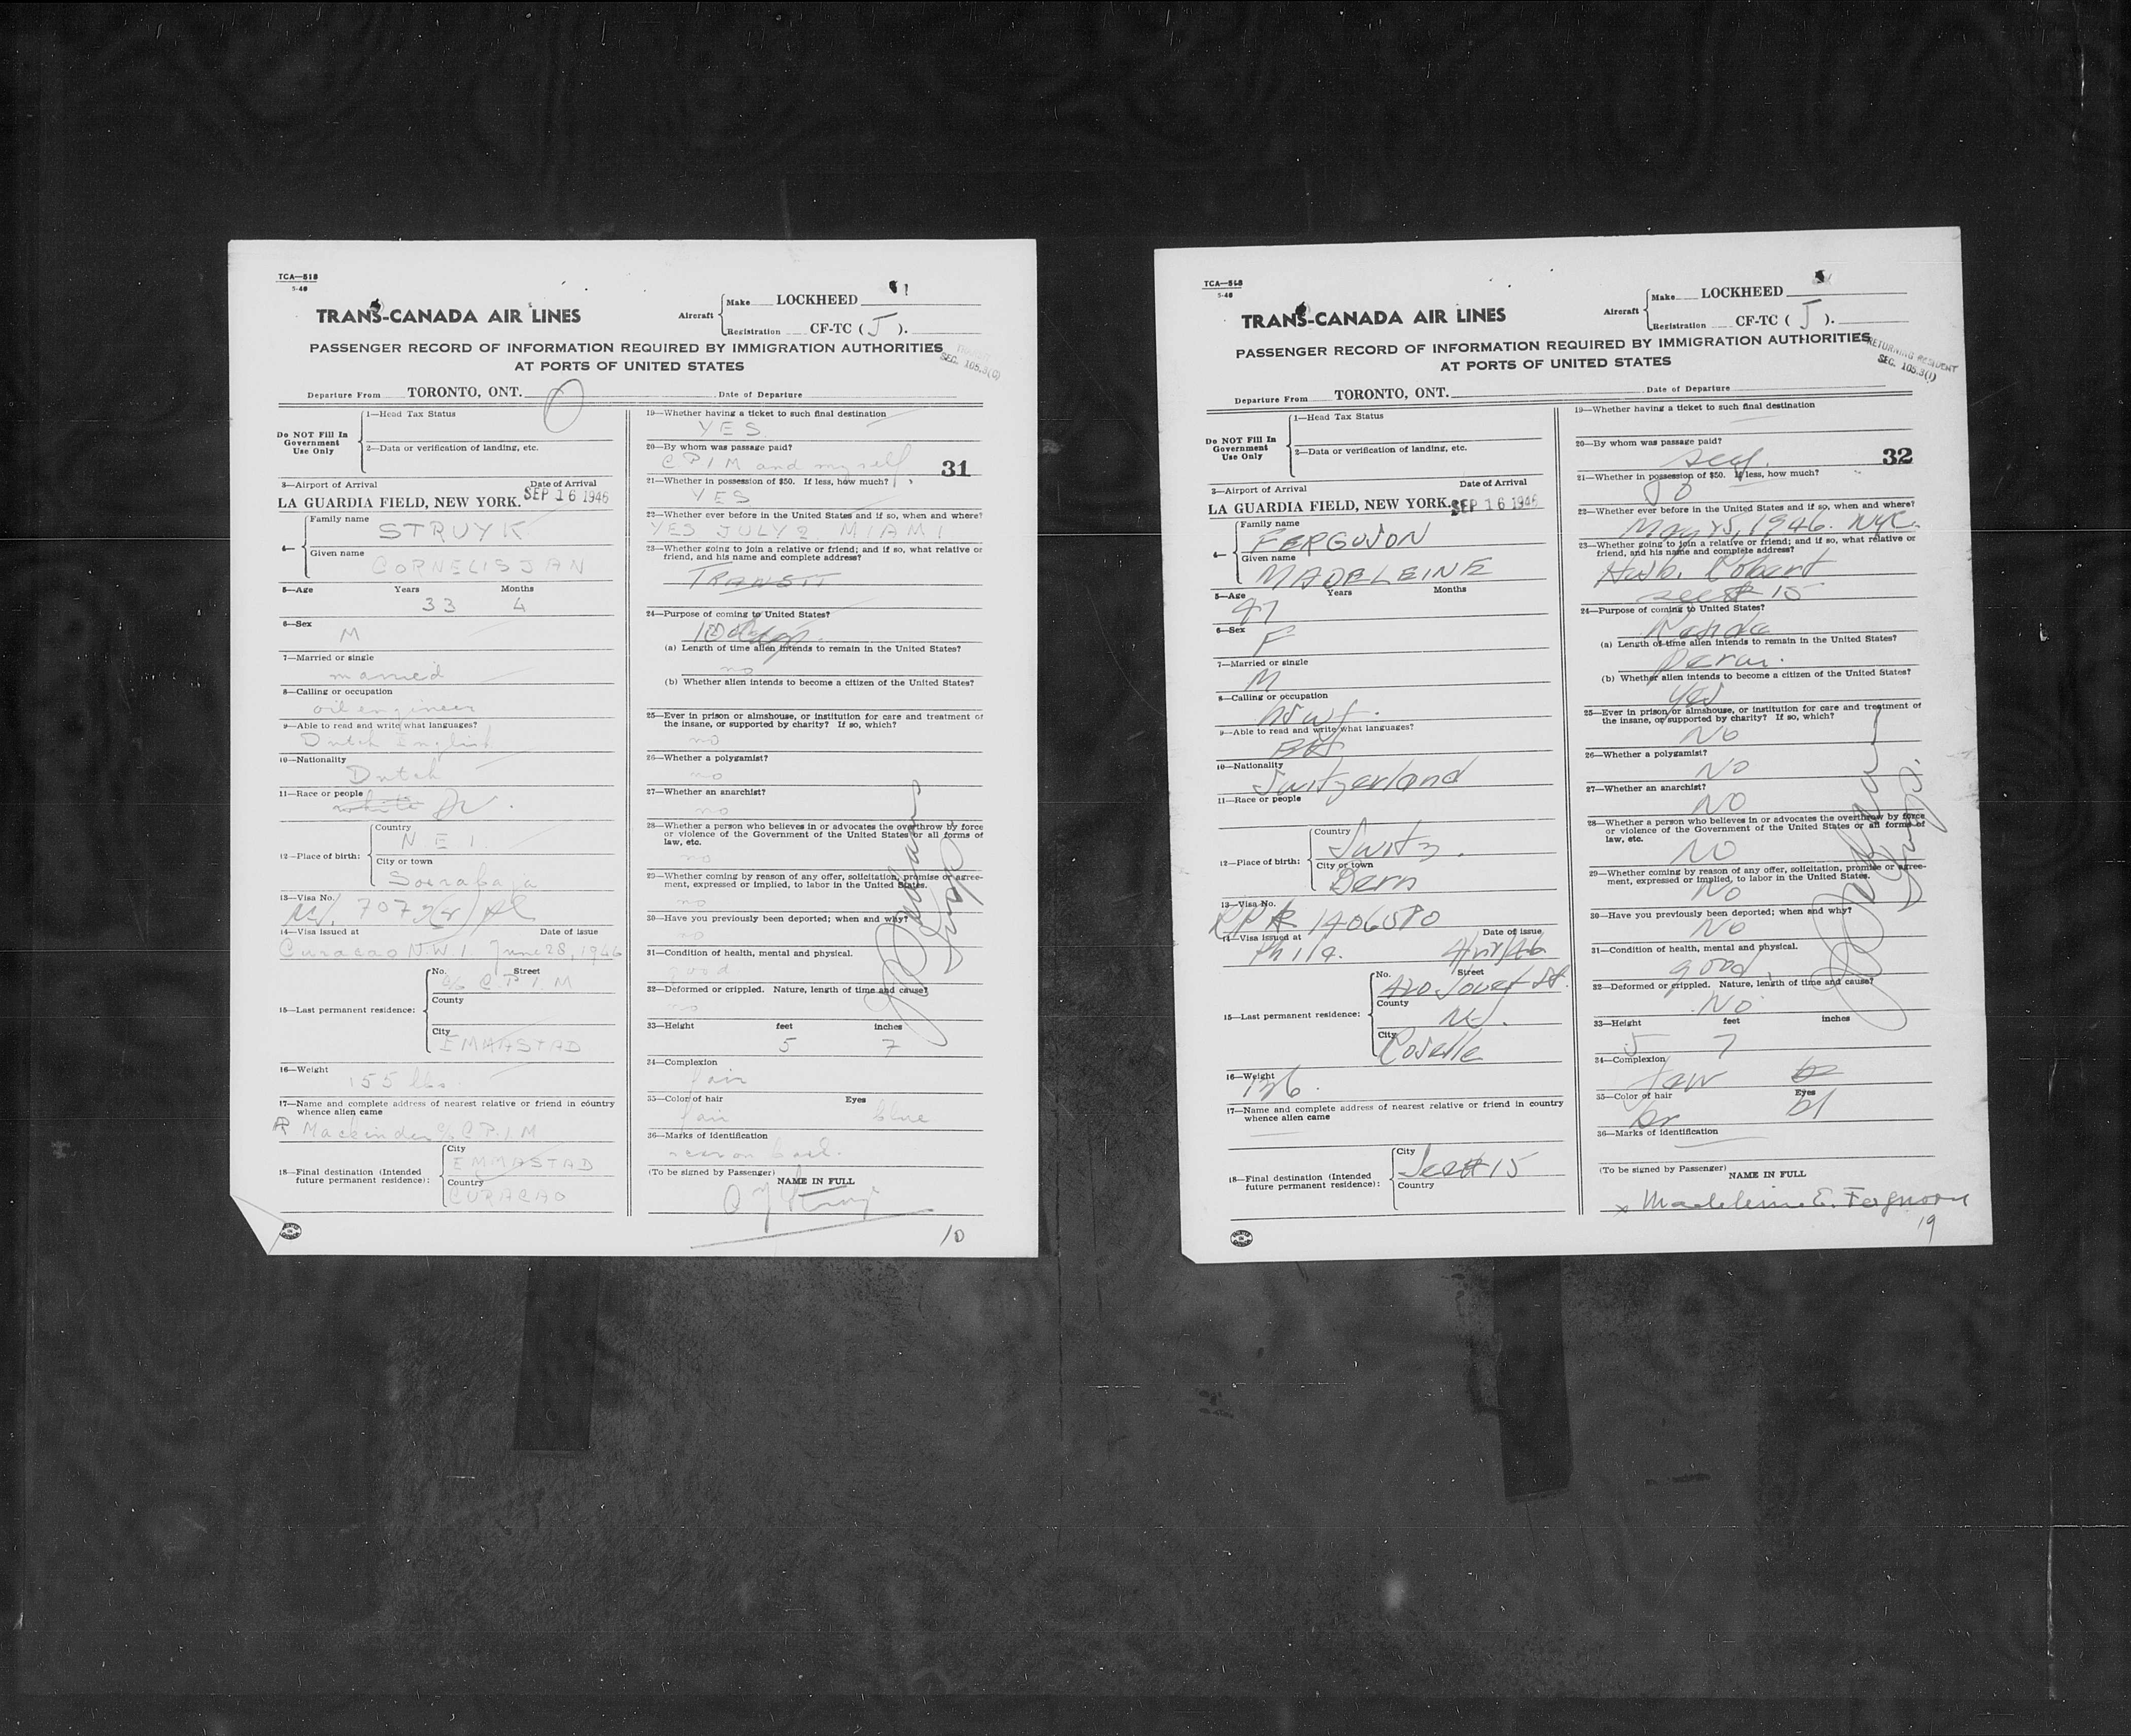 TCA—518
5-46
TRANS-CANADA AIR LINES
Aircraft
Make LOCKHEED
Registration CF-TC ( J ).
PASSENGER RECORD OF INFORMATION REQUIRED BY IMMIGRATION AUTHORITIES
AT PORTS OF UNITED STATES
SEC. 105.3(C)
Departure From TORONTO, ONT. Date of Departure
Do NOT Fill In
Government
Use Only
1—Head Tax Status
2—Data or verification of landing, etc.
3—Airport of Arrival Date of Arrival
LA GUARDIA FIELD, NEW YORK. SEP 16 1946
4— Family name
STRUYK
Given name
CORNELIS JAN
5—Age Years Months
33 4
6—Sex
M
7—Married or single
married
8—Calling or occupation
oil engineer
9—Able to read and write what languages?
Dutch English
10—Nationality
Dutch
11—Race or people
white
12—Place of birth:
Country
N E I
City or town
Soerabaja
13—Visa No.
707
14—Visa issued at Date of issue
Curacao N.W.I. June 28, 1946
15—Last permanent residence:
No. Street
c/o C.P.I.M
County
City
EMMASTAD
16—Weight
155 lbs
17—Name and complete address of nearest relative or friend in country
whence alien came
Mackinder c/o C.P.I.M
18—Final destination (Intended
future permanent residence):
City
EMMASTAD
Country
CURACAO
19—Whether having a ticket to such final destination
YES
20—By whom was passage paid?
CPIM and myself
31
21—Whether in possession of $50. If less, how much?
YES
22—Whether ever before in the United States and if so, when and where?
YES JULY 2, MIAMI
23—Whether going to join a relative or friend; and if so, what relative or
friend, and his name and complete address?
TRANSIT
24—Purpose of coming to United States?
(a) Length of time alien intends to remain in the United States?
no
(b) Whether alien intends to become a citizen of the United States?
25—Ever in prison or almshouse, or institution for care and treatment of
the insane, or supported by charity? If so, which?
no
26—Whether a polygamist?
no
27—Whether an anarchist?
no
28—Whether a person who believes in or advocates the overthrow by force
or violence of the Government of the United States or all forms of
law, etc.
no
29—Whether coming by reason of any offer, solicitation, promise or agree-
ment, expressed or implied, to labor in the United States.
no
30—Have you previously been deported; when and why?
no
31—Condition of health, mental and physical.
good
32—Deformed or crippled. Nature, length of time and cause?
no
33—Height feet inches
5 7
34—Complexion
fair
35—Color of hair Eyes
fair blue
36—Marks of identification
(To be signed by Passenger)
NAME IN FULL
10
TCA—518
5-46
TRANS-CANADA AIR LINES
Aircraft
Make LOCKHEED
Registration CF-TC ( J ).
PASSENGER RECORD OF INFORMATION REQUIRED BY IMMIGRATION AUTHORITIES
AT PORTS OF UNITED STATES
RETURNING RESIDENT
SEC. 105.3(1)
Departure From TORONTO, ONT. Date of Departure
Do NOT Fill In
Government
Use Only
1—Head Tax Status
2—Data or verification of landing, etc.
3—Airport of Arrival Date of Arrival
LA GUARDIA FIELD, NEW YORK. SEP 16 1946
4— Family name
FERGUSON
Given name
MADELEINE
5—Age Years Months
47
6—Sex
F
7—Married or single
M
8—Calling or occupation
hswf.
9—Able to read and write what languages?
10—Nationality
Switzerland
11—Race or people
12—Place of birth:
Country
Switz.
City or town
Bern
13—Visa No.
1406580
14—Visa issued at Date of issue
Phila.
15—Last permanent residence:
No. Street
420 St.
County
NJ.
City
Roselle
16—Weight
136.
17—Name and complete address of nearest relative or friend in country
whence alien came
18—Final destination (Intended
future permanent residence):
City
See #15
Country
19—Whether having a ticket to such final destination
20—By whom was passage paid?
self.
32
21—Whether in possession of $50. If less, how much?
22—Whether ever before in the United States and if so, when and where?
May 25, 1946. NYC.
23—Whether going to join a relative or friend; and if so, what relative or
friend, and his name and complete address?
Husb. Robert
see # 15
24—Purpose of coming to United States?
Reside
(a) Length of time alien intends to remain in the United States?
Perm.
(b) Whether alien intends to become a citizen of the United States?
Yes
25—Ever in prison or almshouse, or institution for care and treatment of
the insane, or supported by charity? If so, which?
No
26—Whether a polygamist?
NO
27—Whether an anarchist?
NO
28—Whether a person who believes in or advocates the overthrow by force
or violence of the Government of the United States or all forms of
law, etc.
NO
29—Whether coming by reason of any offer, solicitation, promise or agree-
ment, expressed or implied, to labor in the United States.
No
30—Have you previously been deported; when and why?
No
31—Condition of health, mental and physical.
good
32—Deformed or crippled. Nature, length of time and cause?
No
33—Height feet inches
5 7
34—Complexion
35—Color of hair Eyes
br bl
36—Marks of identification
(To be signed by Passenger)
NAME IN FULL
x Madeleine E. Ferguson
19